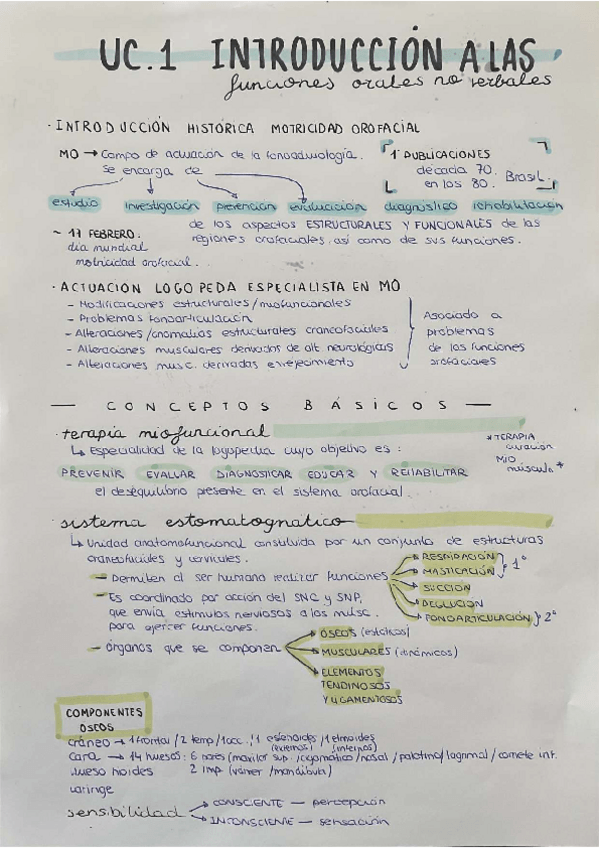 UC.1 INTRODUCCIÓN A LAS
funciones orales no verbales
· INTRODUCCIÓN HISTÓRICA MOTRICIDAD OROFACIAL
MO → Campo de actuación de la fonoaudiología.
se encarga de
1ª PUBLICACIONES
década 70.
en los 80. Brasil.
estudio investigación prevención evaluación diagnóstico rehabilitación
de los aspectos ESTRUCTURALES Y FUNCIONALES de las
regiones orofaciales, así como de sus funciones.
~ 17 FEBRERO.
día mundial
motricidad orofacial.
· ACTUACIÓN LOGOPEDA ESPECIALISTA EN MO
- Modificaciones estructurales/miofuncionales
- Problemas fonoarticulación
- Alteraciones/anomalías estructurales craneofaciales
- Alteraciones musculares derivados de alt. neurológicas
- Alteraciones musc. derivadas envejecimiento
Asociado a
problemas
de las funciones
orofaciales
— CONCEPTOS BÁSICOS —
· terapia miofuncional
↳ Especialidad de la logopedia cuyo objetivo es :
* TERAPIA
curación
MIO
músculo *
PREVENIR EVALUAR DIAGNOSTICAR EDUCAR Y REHABILITAR
el desequilibrio presente en el sistema orofacial.
· sistema estomatognático
↳ Unidad anatomofuncional constituida por un conjunto de estructuras
craneofaciales y cervicales.
- Permiten al ser humano realizar funciones
RESPIRACIÓN
MASTICACIÓN } 1º
SUCCIÓN
DEGLUCIÓN
FONOARTICULACIÓN } 2º
- Es coordinado por acción del SNC y SNP,
que envía estímulos nerviosos a los músc.
para ejercer funciones.
- órganos que se componen
ÓSEOS (estáticos)
MUSCULARES (dinámicos)
ELEMENTOS
TENDINOSOS
Y LIGAMENTOSOS
COMPONENTES
ÓSEOS
cráneo → 1 frontal / 2 temp / 1 occ. / 1 esfenoides / 1 etmoides
(externos) (internos)
cara → 14 huesos: 6 pares (maxilar sup. / cigomático / nasal / palatino / lagrimal / cornete inf.
2 imp (vómer / mandíbula)
hueso hioides
laringe
sensibilidad
CONSCIENTE — percepción
INCONSCIENTE — sensación